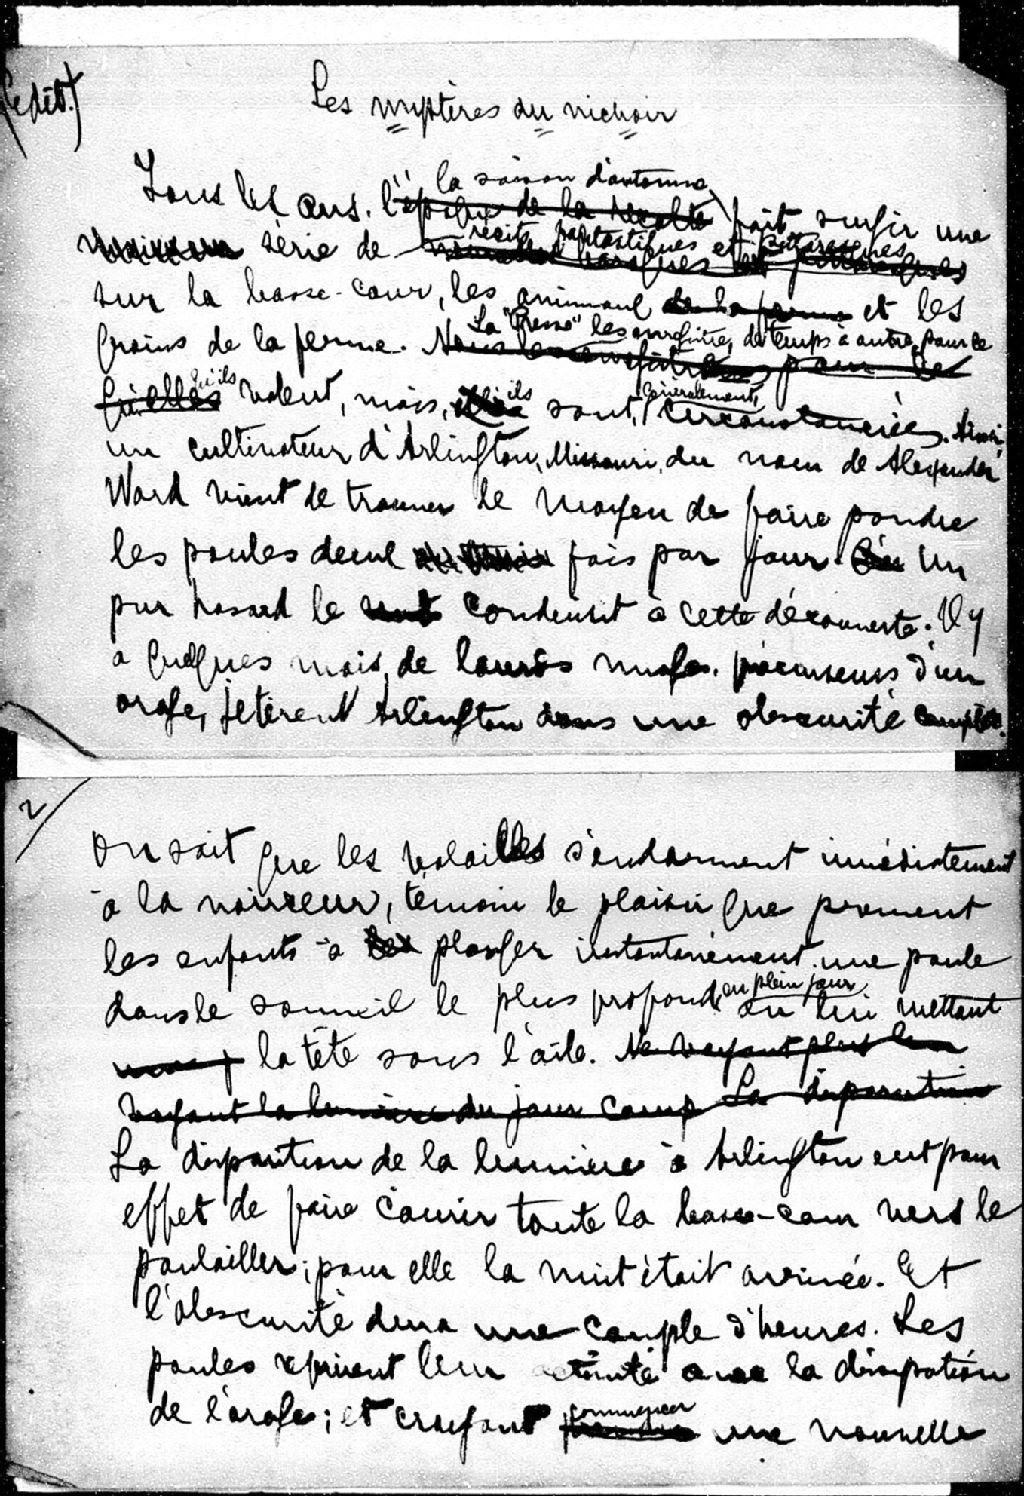 (édit.)
Les mystères du nichoir
la saison d'automne
Tous les ans, l'époque de la récolte fait surgir une
récits fantastiques et pittoresques
série de nouvelles
sur la basse-cour, les animaux de la ferme et les
La "Presse" les enregistre, de temps à autre, pour ce
grains de la ferme. Nous les enregistrons pour ce
qu'ils ils généralement,
qu'elles valent, mais, elles sont, circonstanciés. Ainsi
un cultivateur d'Arlington, Missouri, du nom de Alexander
Ward vient de trouver le moyen de faire pondre
les poules deux ou trois fois par jour. Un
pur hasard le conduisit à cette découverte. Il y
a quelques mois, de lourds nuages, précurseurs d'un
orage, jetèrent Arlington dans une obscurité complète.
2
On sait que les volailles s'endorment immédiatement
à la noirceur, témoin le plaisir que prennent
les enfants à les plonger instantanément une poule
en plein jour
dans le sommeil le plus profond, en lui mettant
la tête sous l'aile. Ne voyant plus la
voyant la lumière du jour comp La disparition
La disparition de la lumière à Arlington eut pour
effet de faire courir toute la basse-cour vers le
poulailler; pour elle la nuit était arrivée. Et
l'obscurité dura une couple d'heures. Les
poules reprirent leur activité avec la dissipation
commencer
de l'orage; et croyant prendre une nouvelle